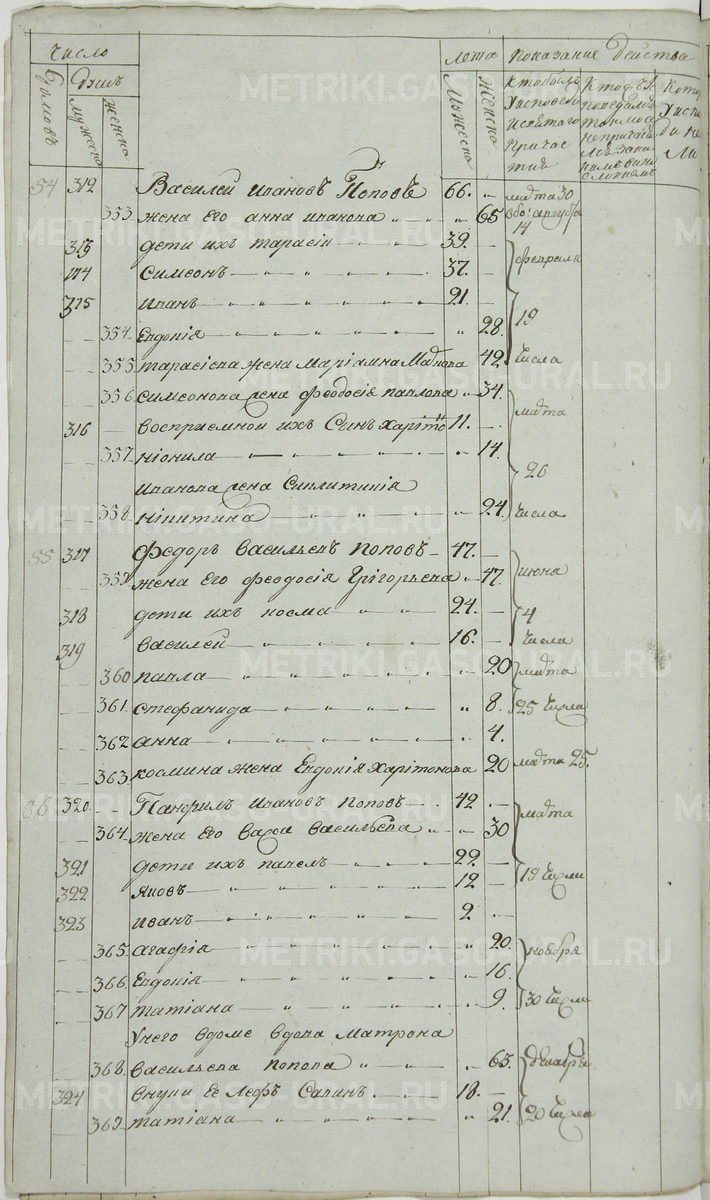 Число
Лета
Показание действа
Домовъ
Душъ
Мужеска
Женска
Мужеска
Женска
Кто былъ
У исповеди
и святаго
Причас
тия
54 312 Василей Ивановъ Поповъ 66. марта 30
353 жена его анна иванова 65 августа
14
313 дети ихъ тарасiй 39.
февраля
314 Симеонъ 37.
315 Иванъ 21.
19
354 Евдокiя 28.
355 тарасiева жена Марiамна 42 числа
356 симеонова жена феодосiя павлова 34.
марта
316 восприемной ихъ Сынъ Харiто 11.
357 нiонила 14.
26
Иванова жена Сиглитикiя
358 нiкитина 24. числа
55 317 Федоръ Васильевъ Поповъ 47.
июня
359 жена его феодосiя Григорьева 47.
318 дети ихъ косма 24. 4
319 Василей 16. числа
360 павла 20 марта
361 стефанида 8. 25 числа
362 анна 4.
363 космина жена Евдокiя Харiтонова 20 марта 25.
56 320 Панфилъ Ивановъ Поповъ 42
марта
364 жена его Васса Васильева 30
321 дети ихъ павелъ 22. 19 числа
322 Яковъ 12
323 Иванъ 2
365 агафiя 20. ноября
366 Евдокiя 16.
367 татiана 9. 30 числа
У него вдоме вдова Матрона
368 васильева Попова 63. декабря
324 внуки ее Лефъ Савинъ 18.
369 татiана 21 20 числа
METRIKI.GASO-URAL.RU